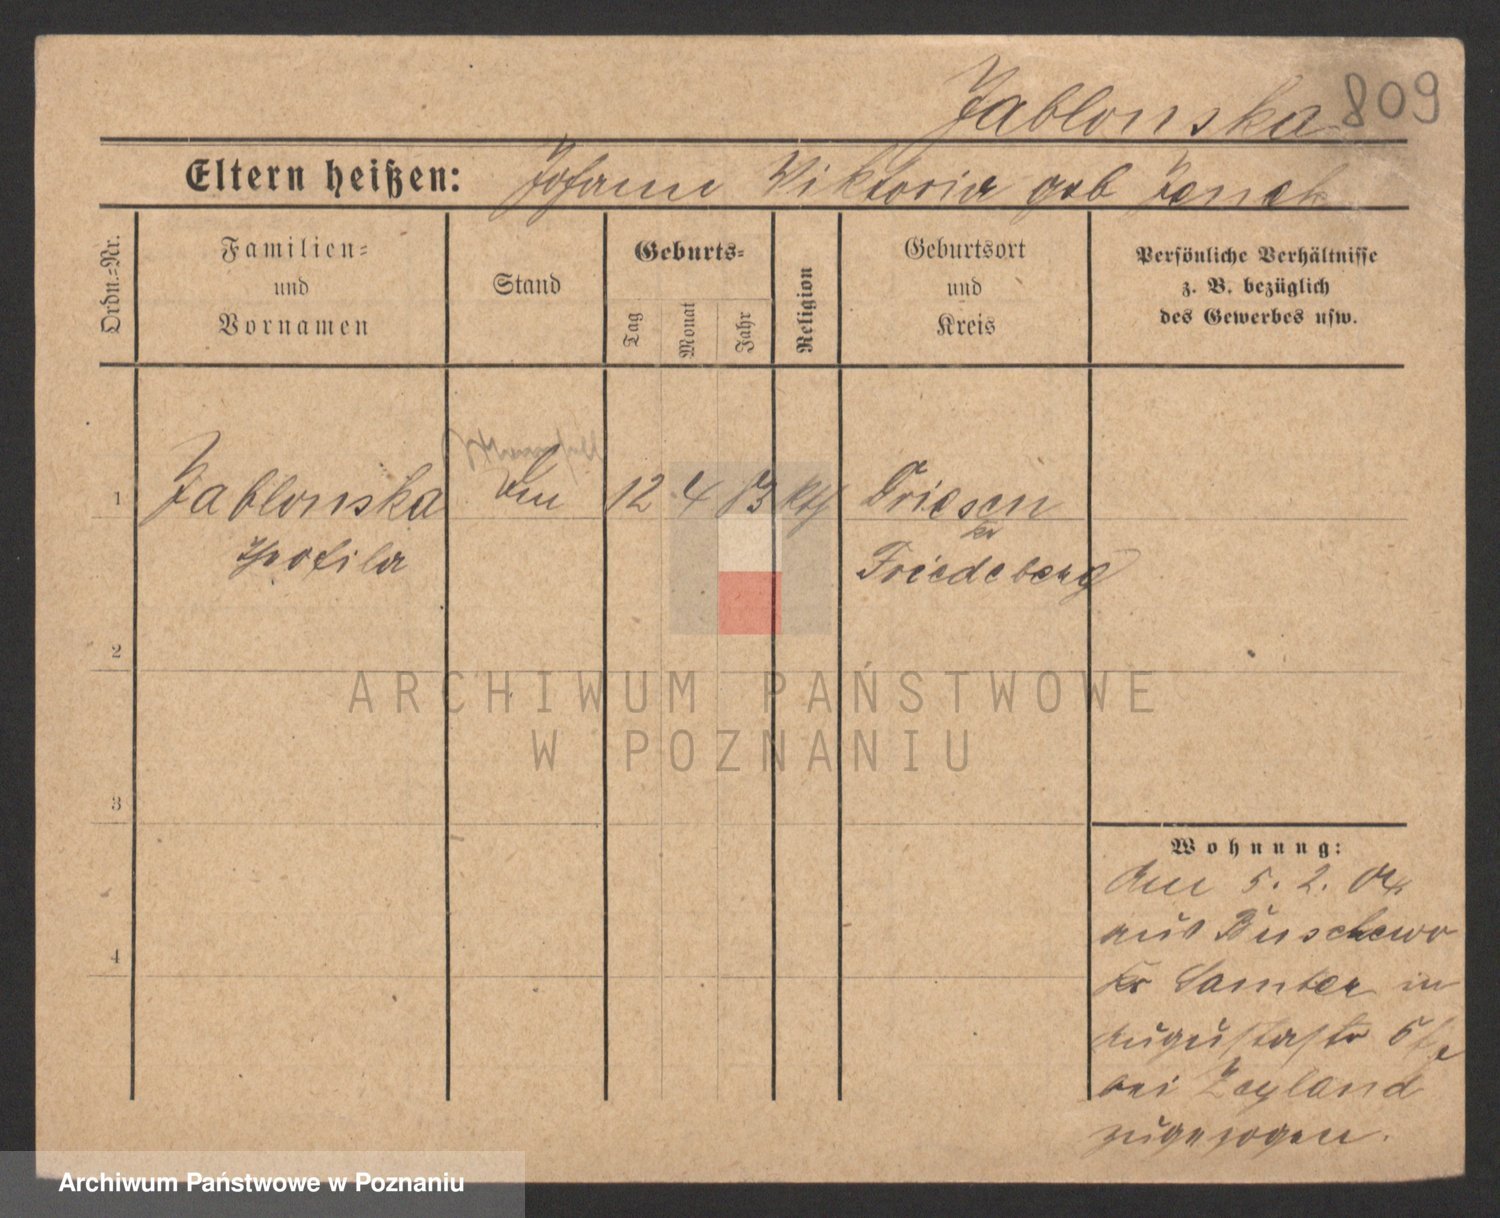 Jablonska 809
Eltern heißen: Johann Viktoria geb
Ordn.=Nr.
Familien=
und
Vornamen
Stand
Geburts=
Tag
Monat
Jahr
Religion
Geburtsort
und
Kreis
Persönliche Verhältnisse
z. B. bezüglich
des Gewerbes usw.
1 Jablonska 12 4 kth Driesen
kr
Friedeberg
2
3
4
ARCHIWUM PAŃSTWOWE
W POZNANIU
Wohnung:
Am 5. 2. 04
aus Buschewo
Kr Samter in
Augustastr
bei Zeyland
zugezogen.
Archiwum Państwowe w Poznaniu